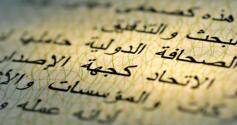 هذه كصحفي
للبحث والتدقيق
الصحافة الدولية حاملها
الاتحاد كجهة الإصدار
والمؤسسات والإ
عمله